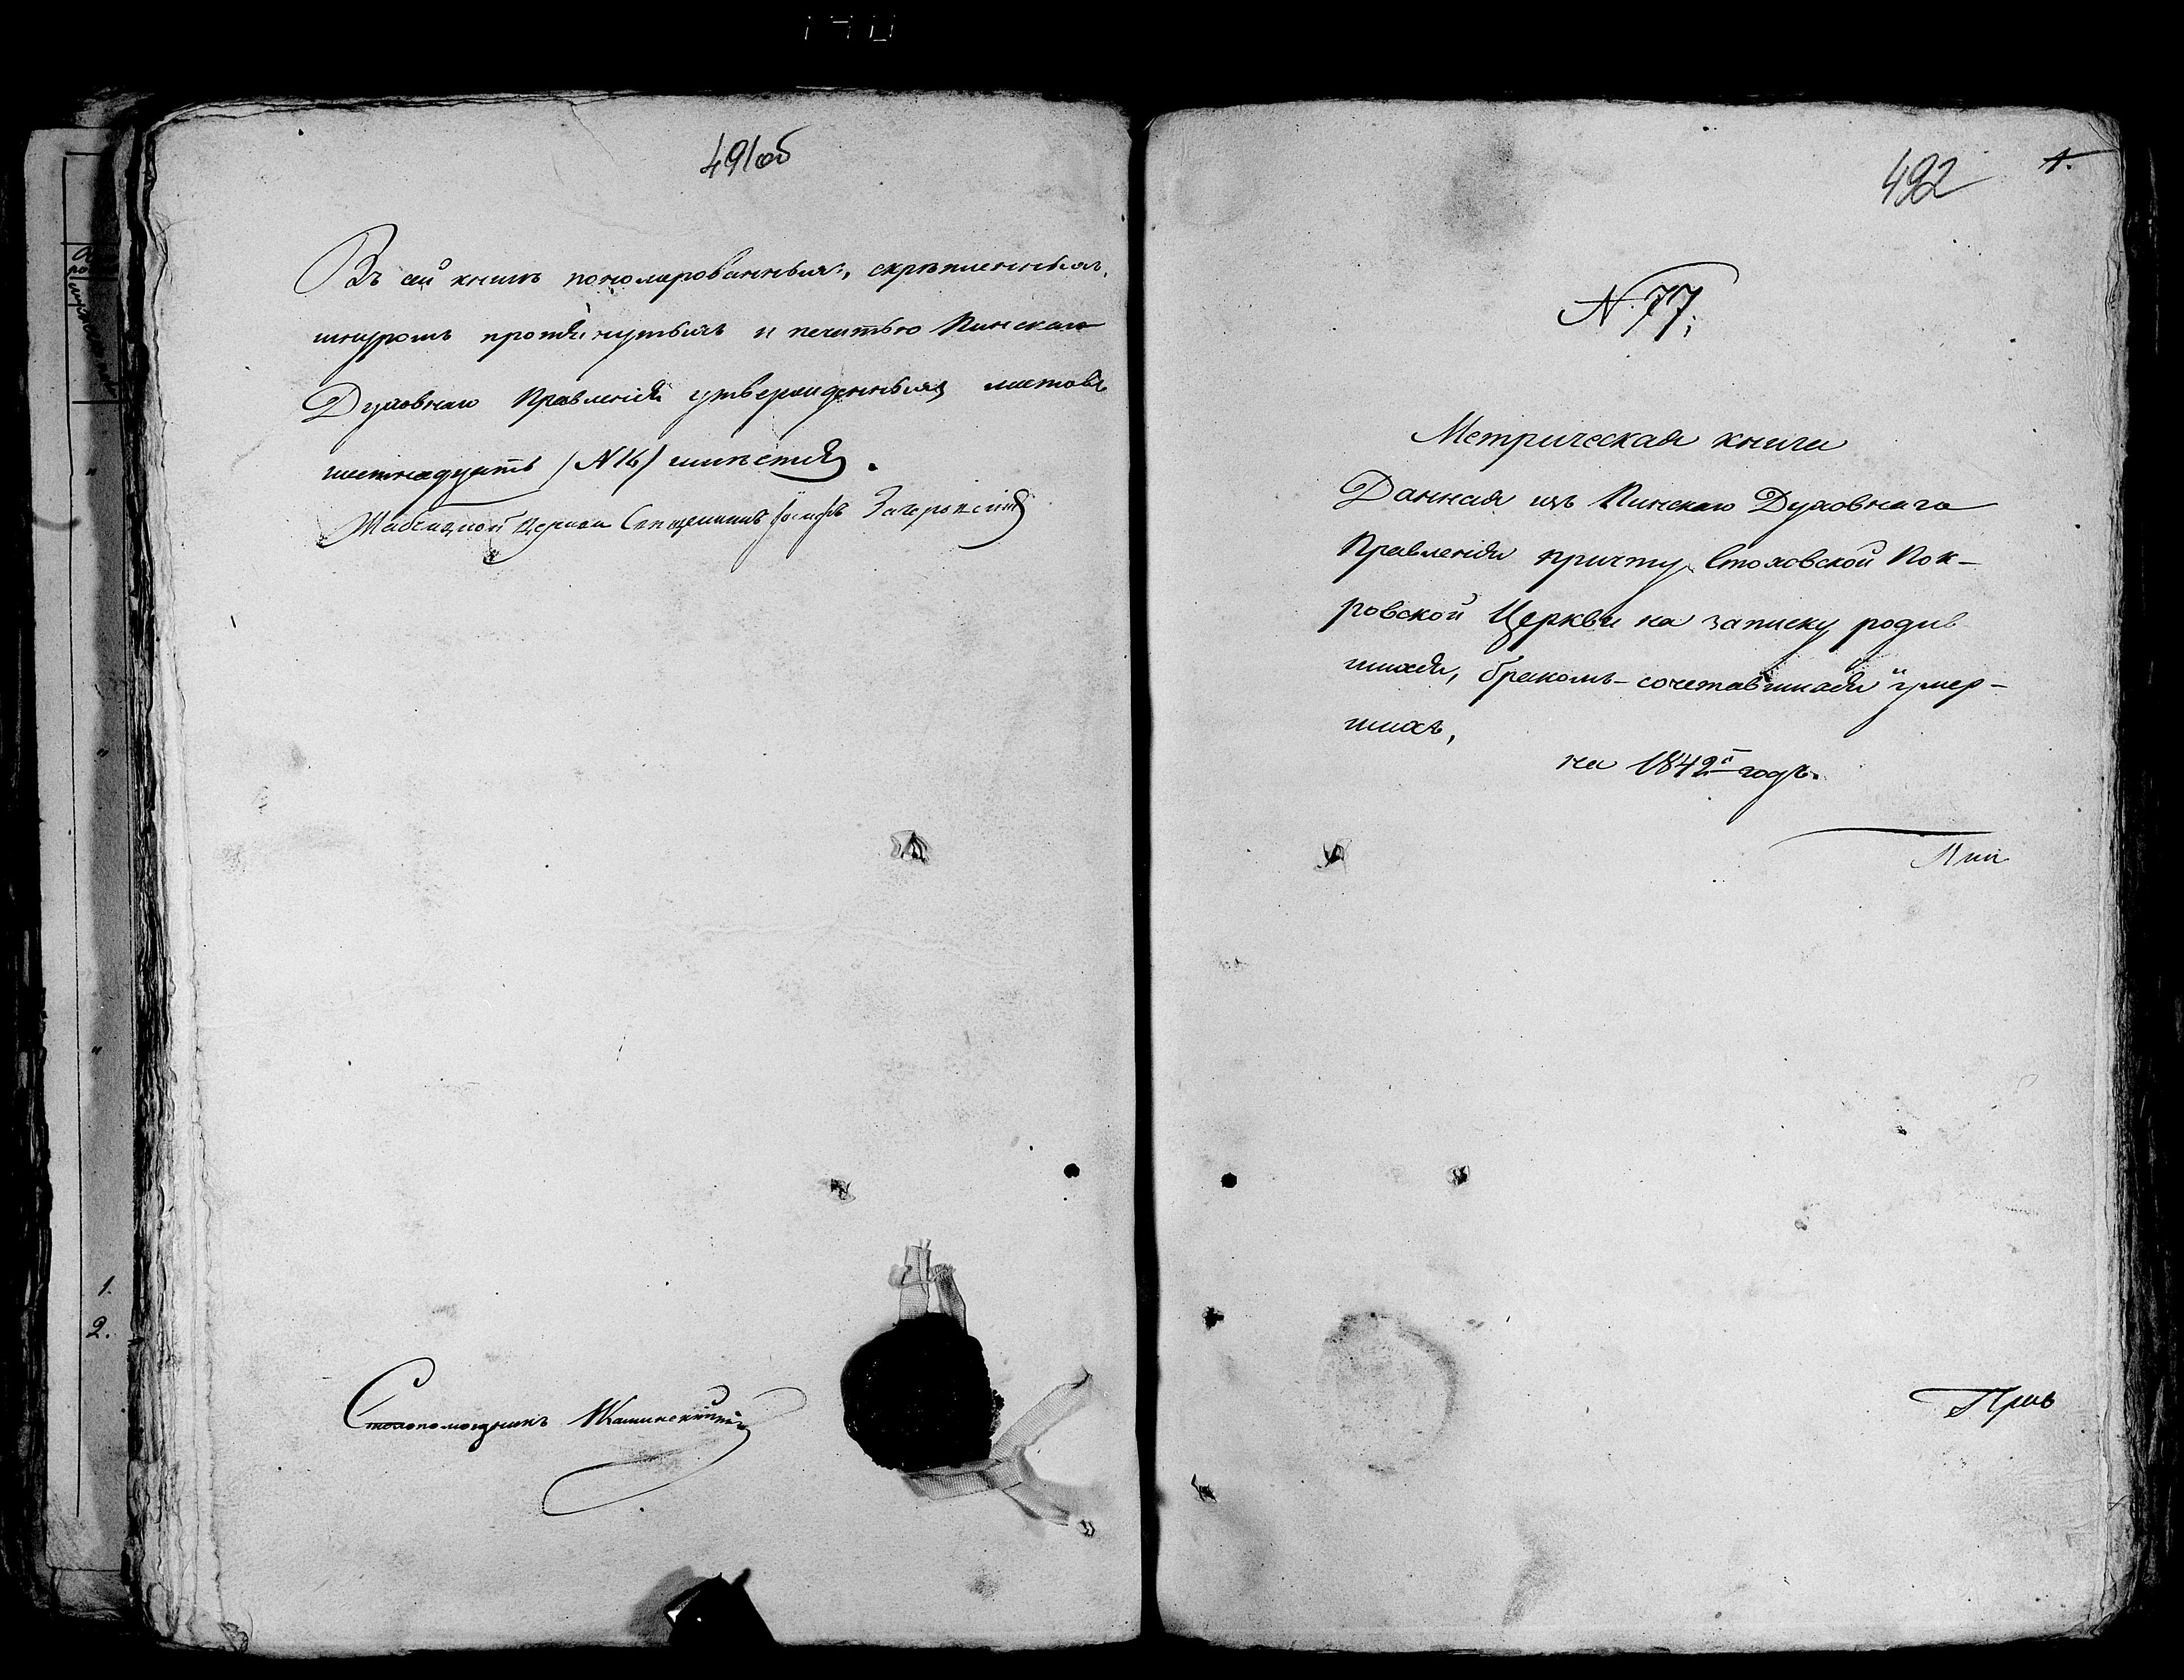 491 об
Въ сей книгѣ пономерованныхъ, скрѣпленныхъ,
шнуромъ протянутыхъ и печатью Пинскаго
Духовнаго Правленія утвержденныхъ листовъ
шестнадцать /N 16/ имѣется.
Церкви Священникъ Іосифъ
Столопомощникъ
492
1.
N. 77,
Метрическая книга
Данная изъ Пинскаго Духовнаго
Правленія причту Столовской Пок-
ровской Церкви на записку родив
шихся, бракомъ-сочетавшихся и умер-
шихъ,
на 1842й годъ.
Пин
Прав
1.
2.